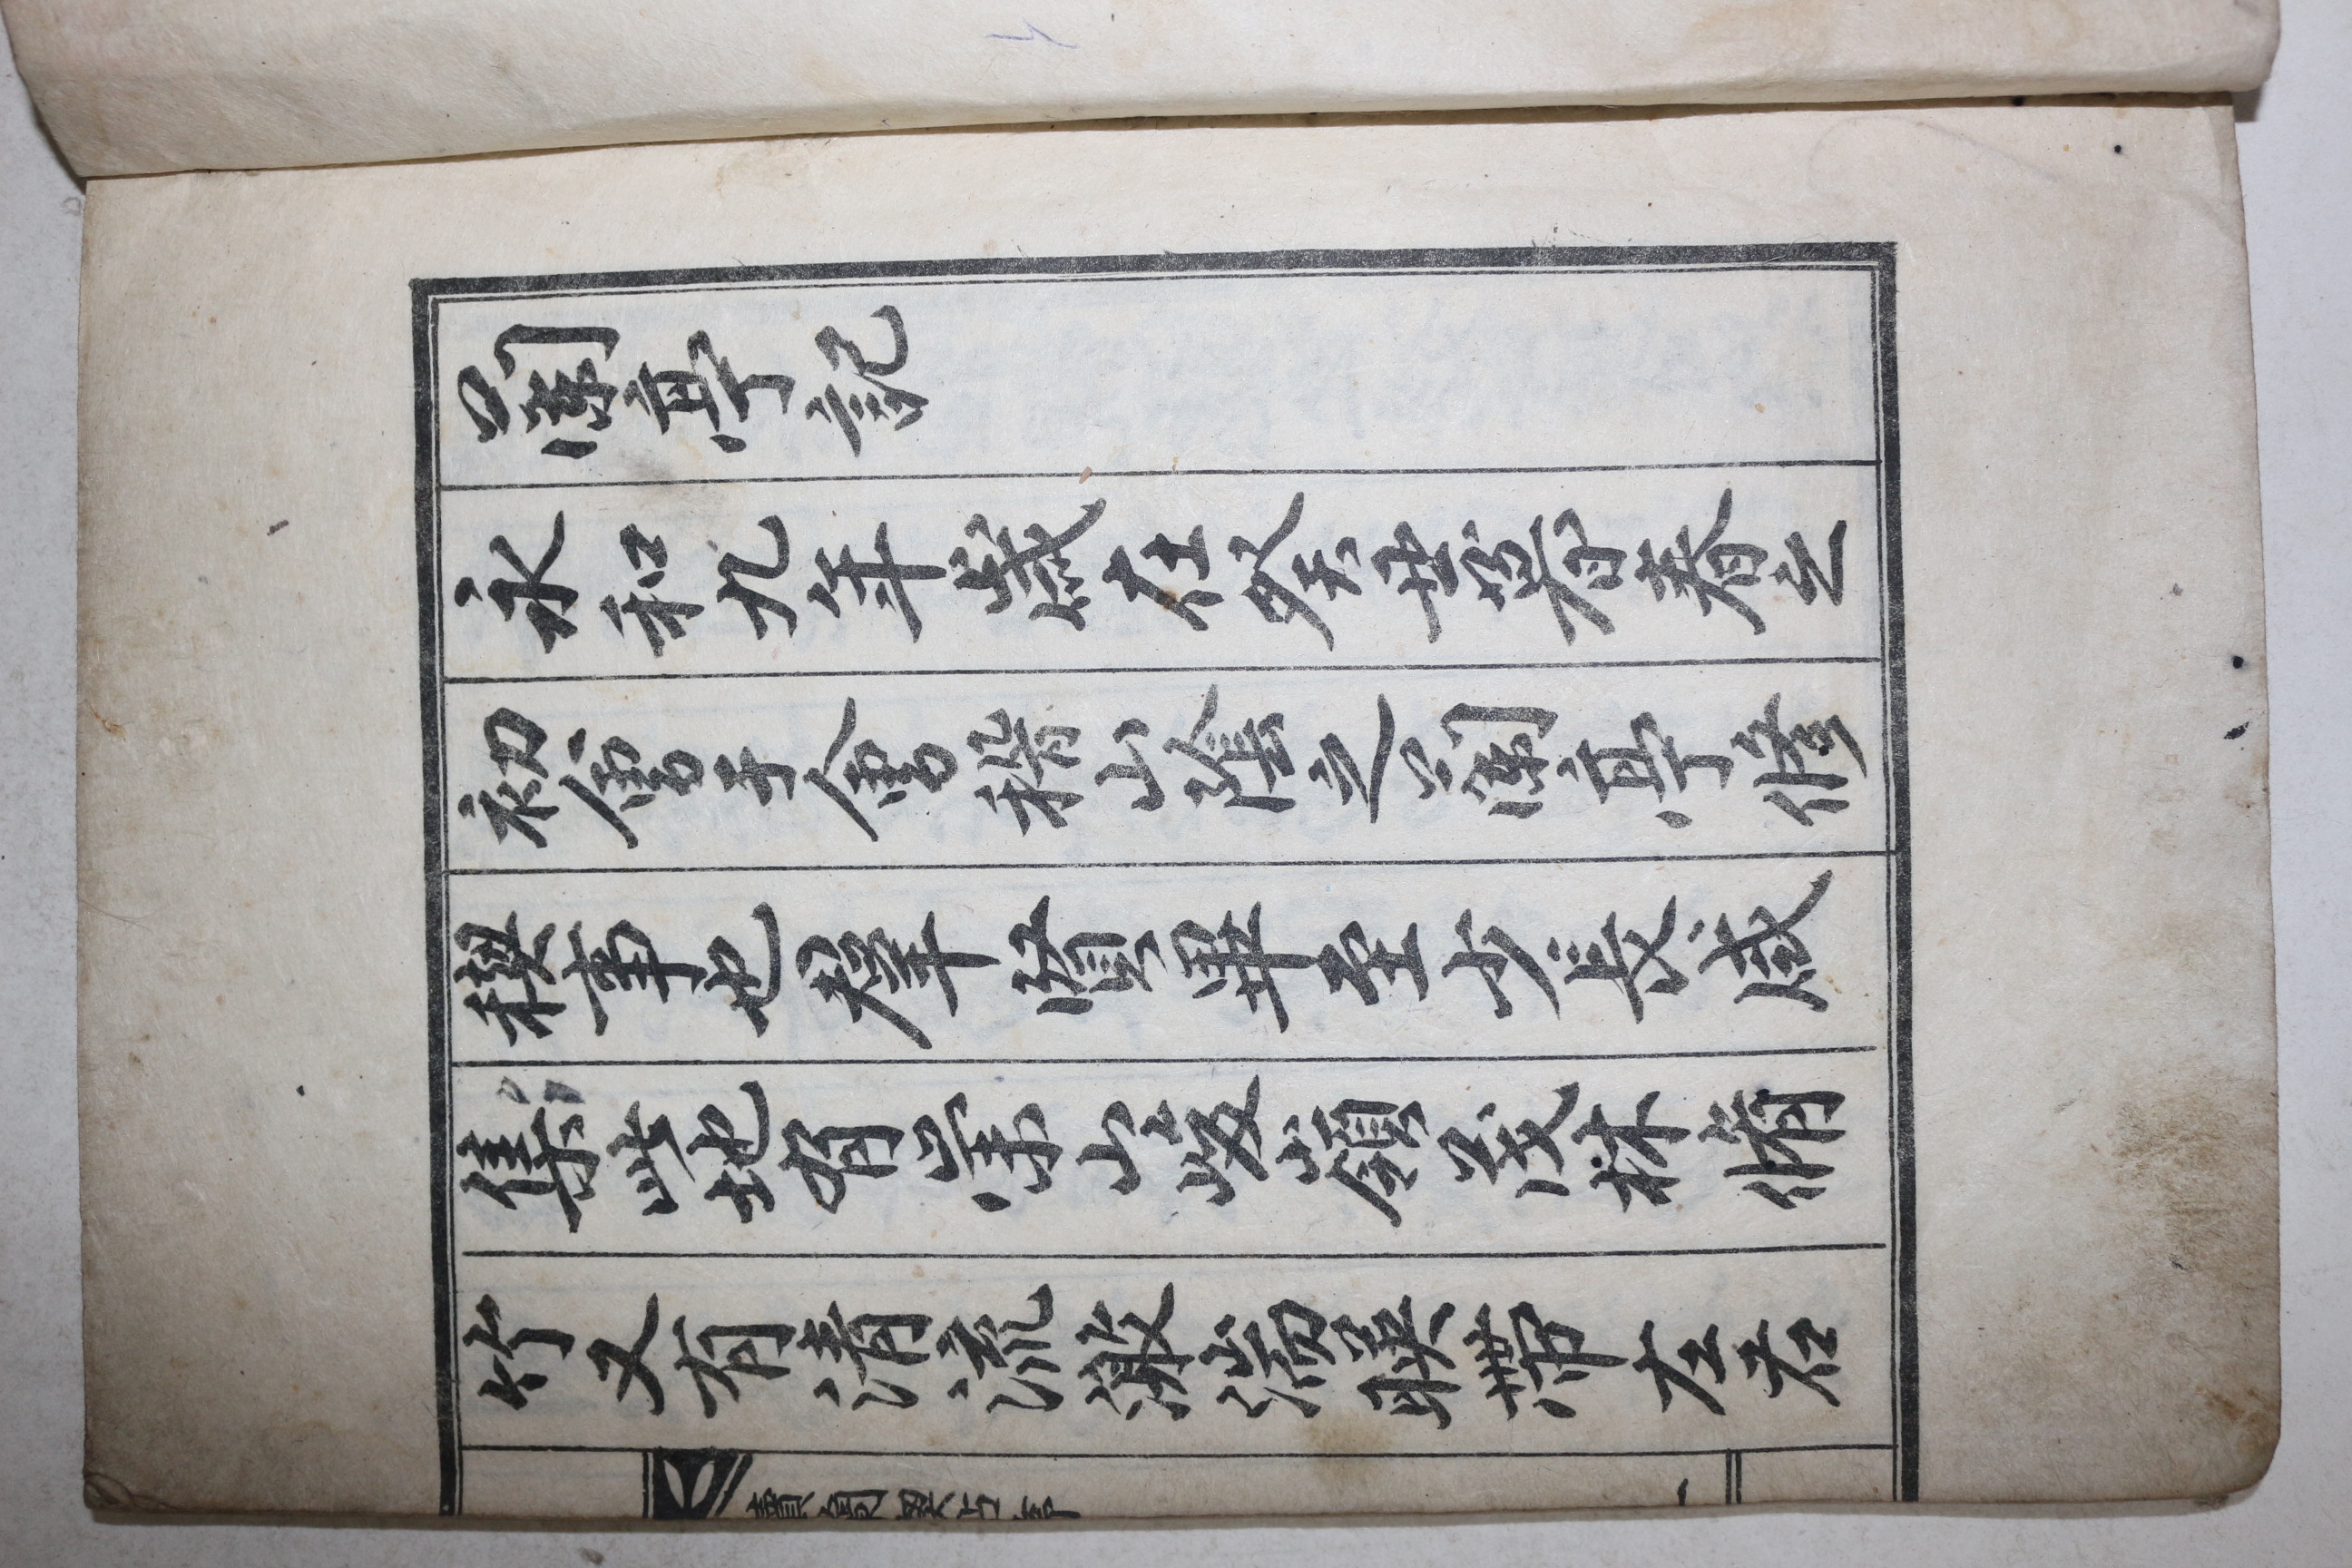 蘭亭記
永和九年歲在癸丑暮春之
初會于會稽山陰之蘭亭脩
禊事也羣賢畢至少長咸
集此地有崇山峻嶺茂林脩
竹又有清流激湍映帶左右